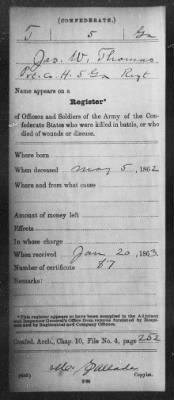 (CONFEDERATE.)
T 5 Ga
Jas. W. Thomas
Pvt. Co. H. 5 Ga Regt
Name appears on a
Register*
of Officers and Soldiers of the Army of the Confederate States who were killed in battle, or who died of wounds or disease.
Where born
When deceased May 5, 1862
Where and from what cause
Amount of money left
Effects
In whose charge
When received Jan 20, 1863
Number of certificate 87
Remarks:
*This register appears to have been compiled in the Adjutant and Inspector General's Office from returns furnished by Hospitals and by Regimental and Company Officers.
Confed. Arch., Chap. 10, File No. 4, page 252
Copyist.